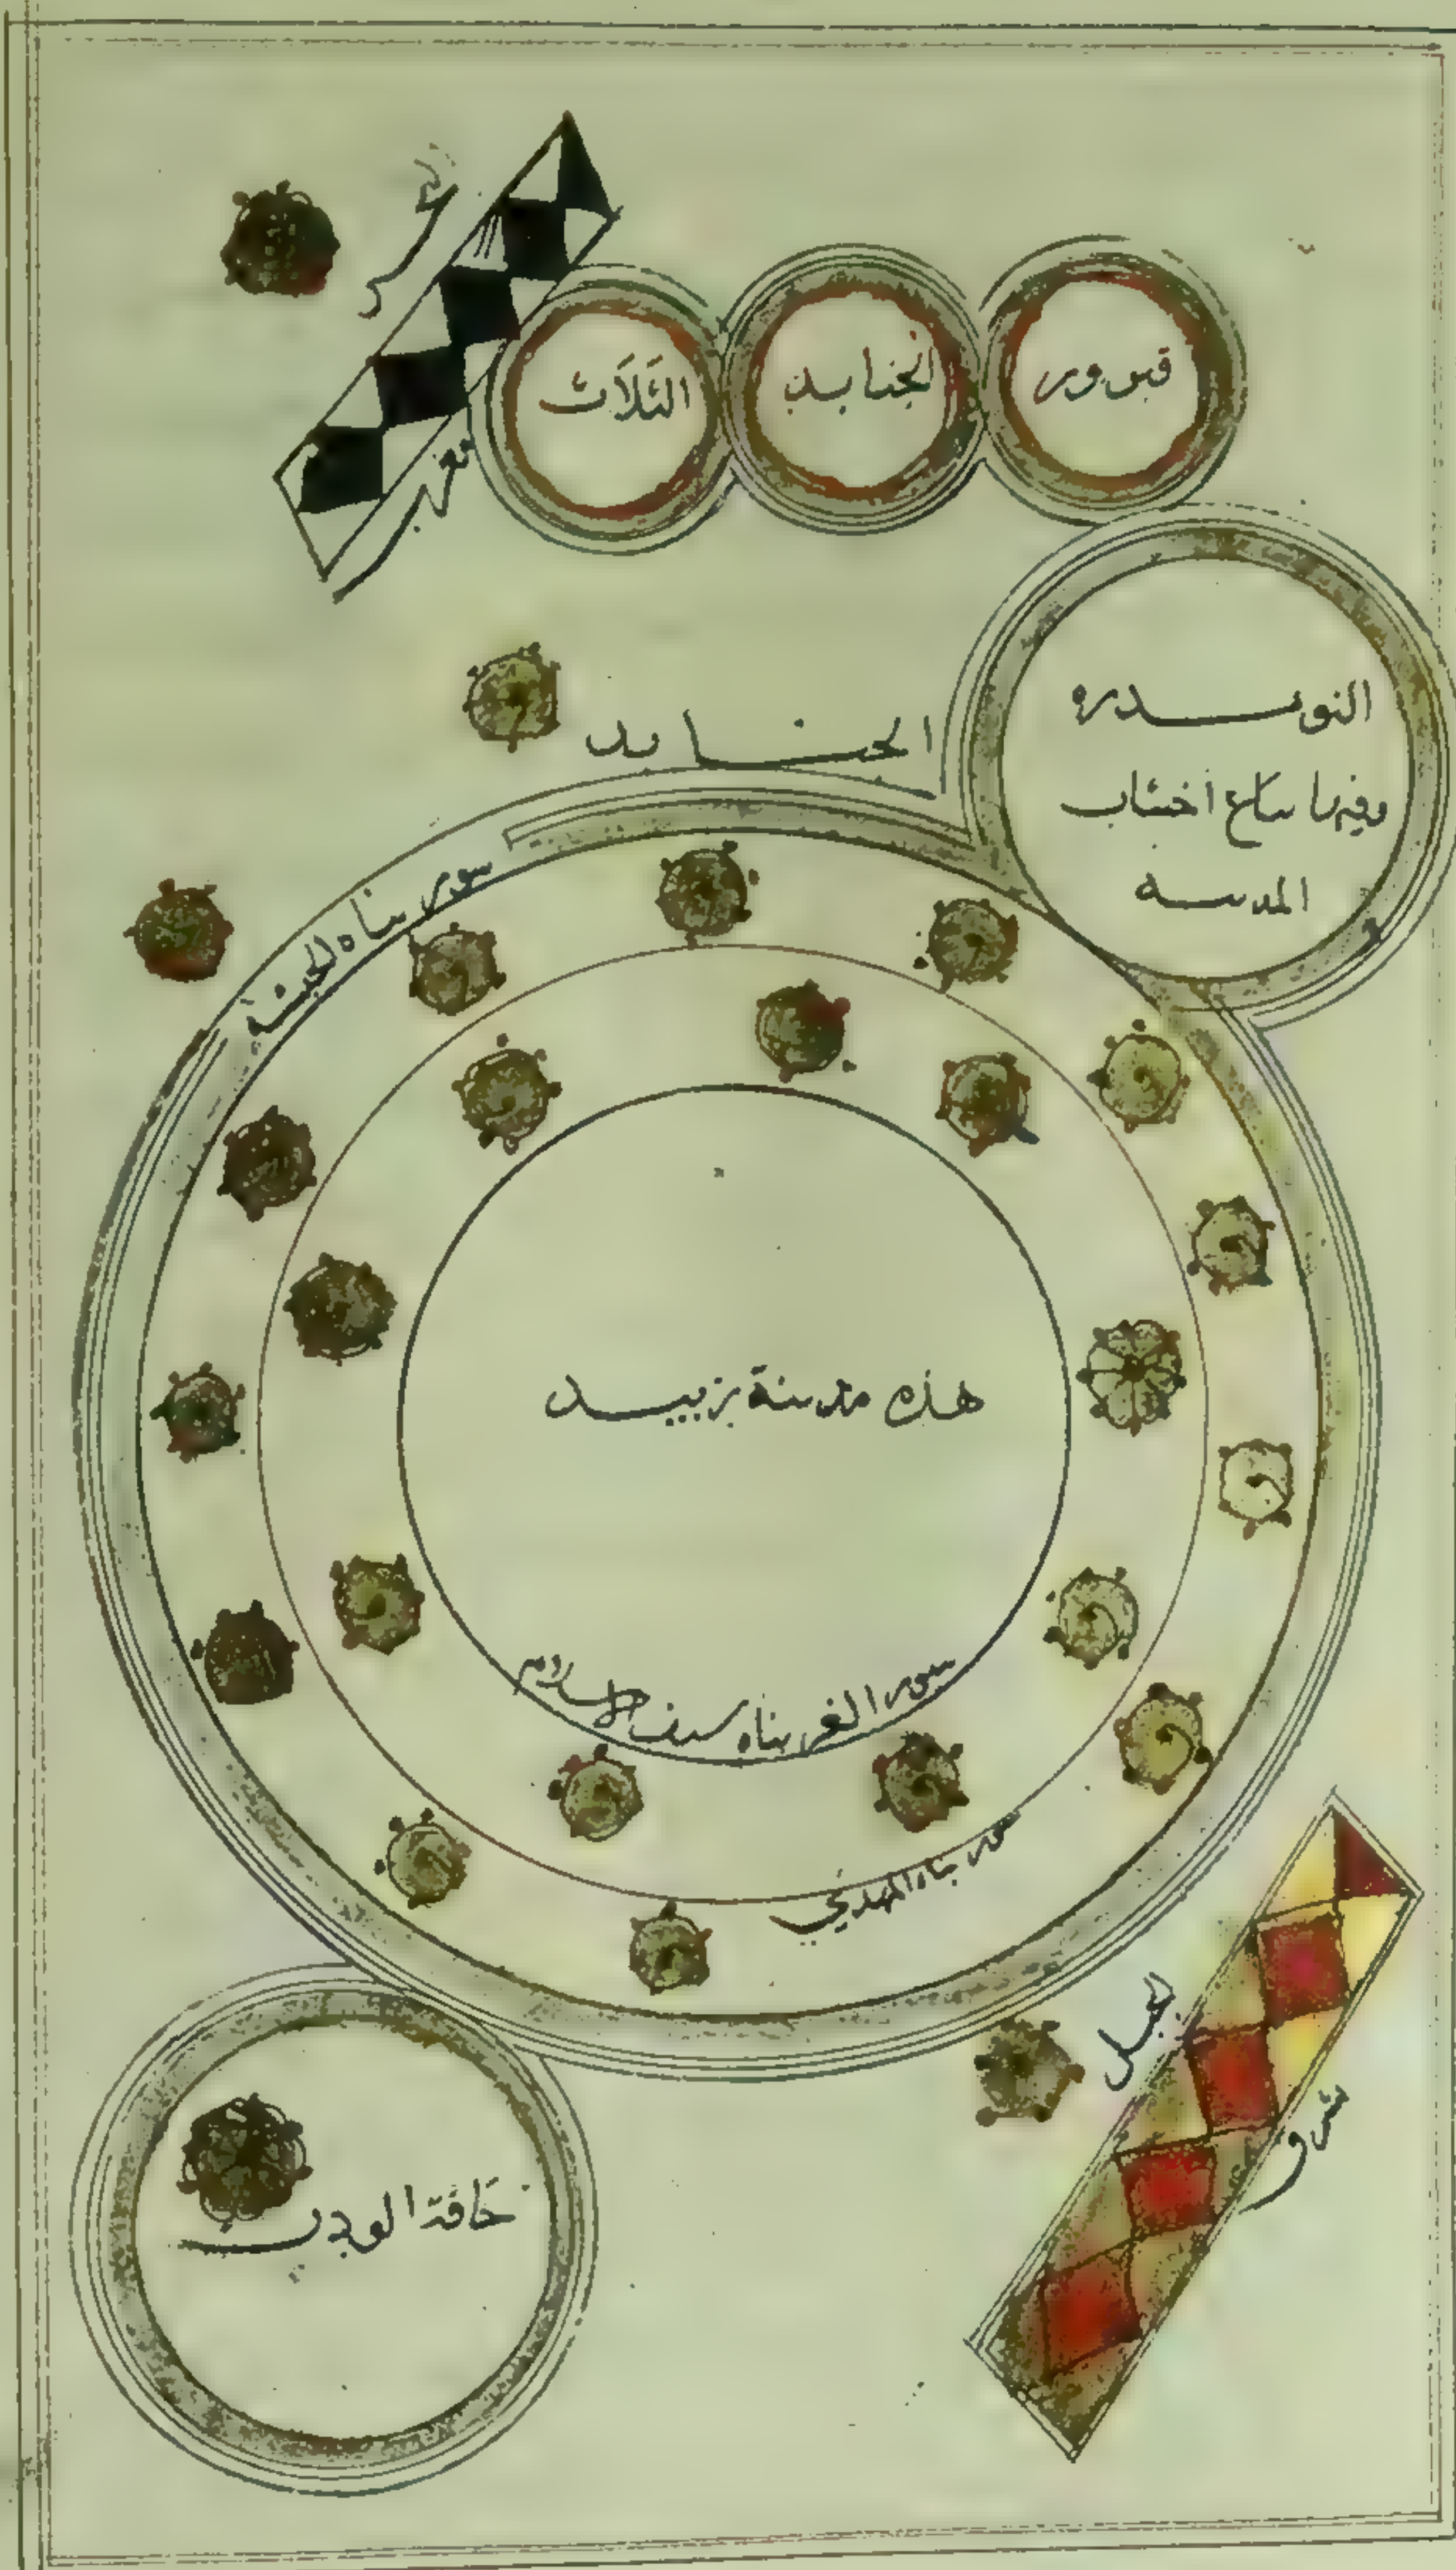 البحر
مغرب
قبور
الجنابد
الثلاث
الجنابد
النويدره
وفيها يباع اخشاب
المدينه
سور بناه الحبشة
هذه مدينة زبيد
سور الغز بناه سيف الاسلام
سور بناه المهدي
الجبل
شرق
حافة الودن